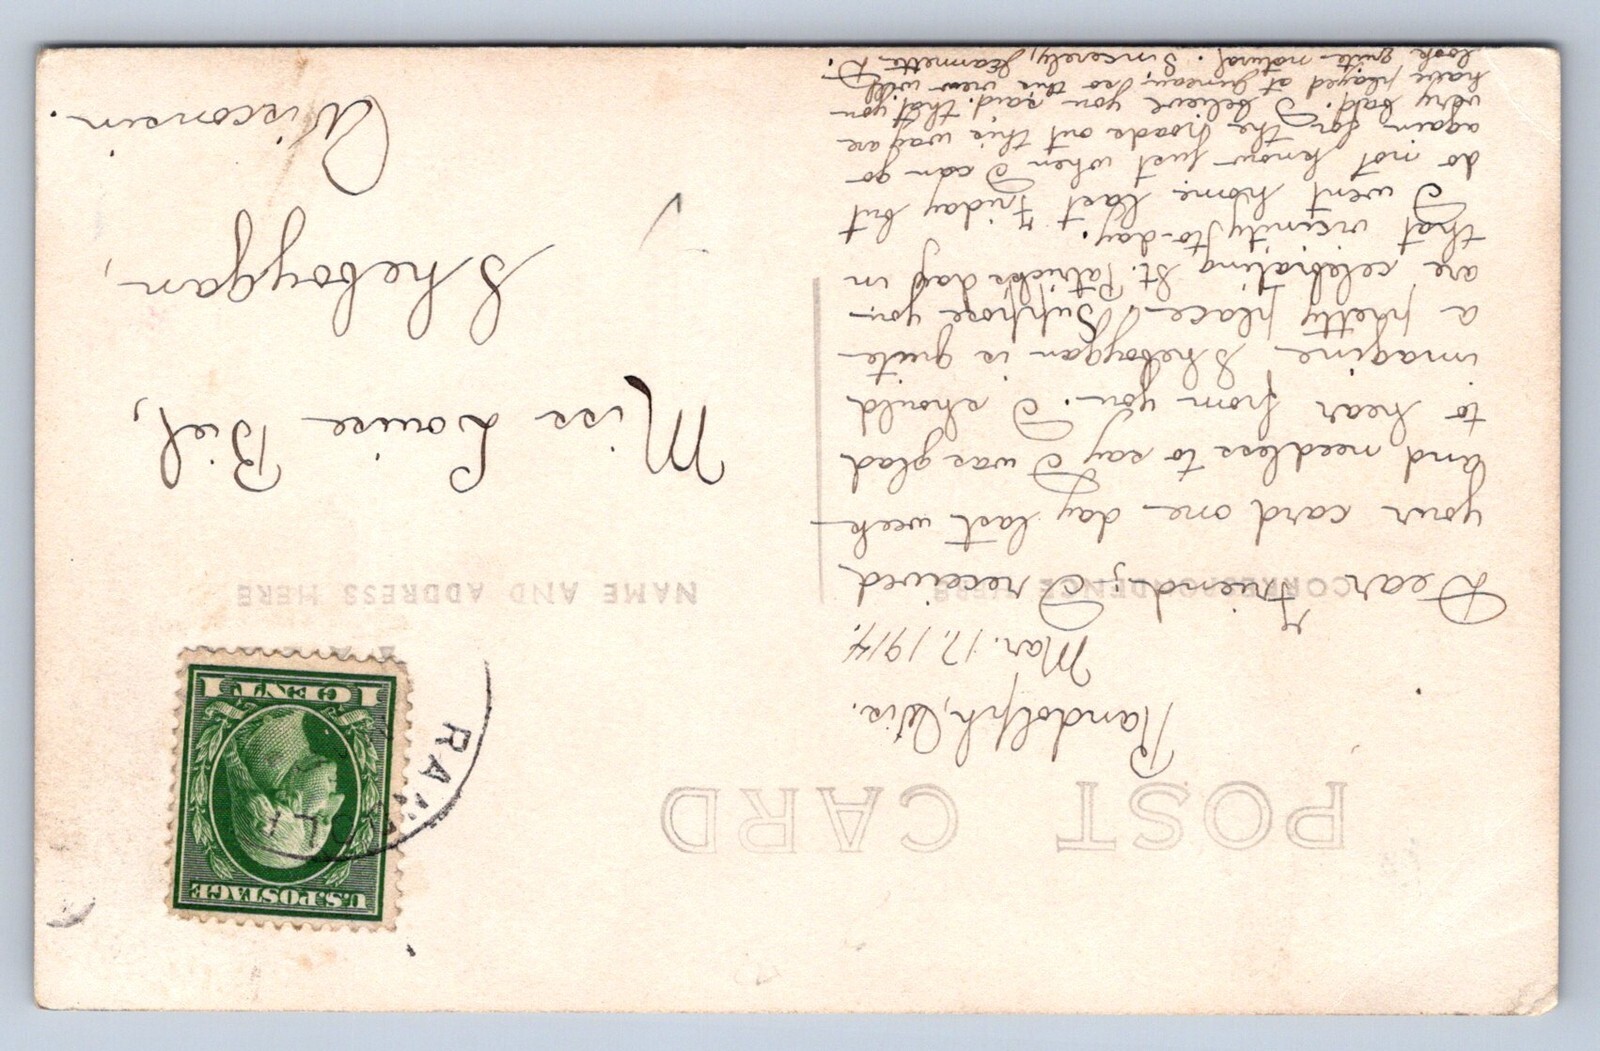 POST CARD
Randolph, Wis.
Mar. 17, 1914.
CORRESPONDENCE HERE
Dear Friend; I received
your card one day last week
and needless to say I was glad
to hear from you. I should
imagine Sheboygan is quite
a pretty place. Suppose you
are celebrating St. Patricks day in
that vicinity to-day.
I went home last Friday but
do not know just when I can go
again for the roads out this way are
very bad. I believe you said that you
have played at Juneau, so this view will
look quite natural. Sincerely, Jeannette R.
U.S. POSTAGE
1 CENT 1
RANDOL
NAME AND ADDRESS HERE
Miss Louise Biel,
Sheboygan,
Wisconsin.